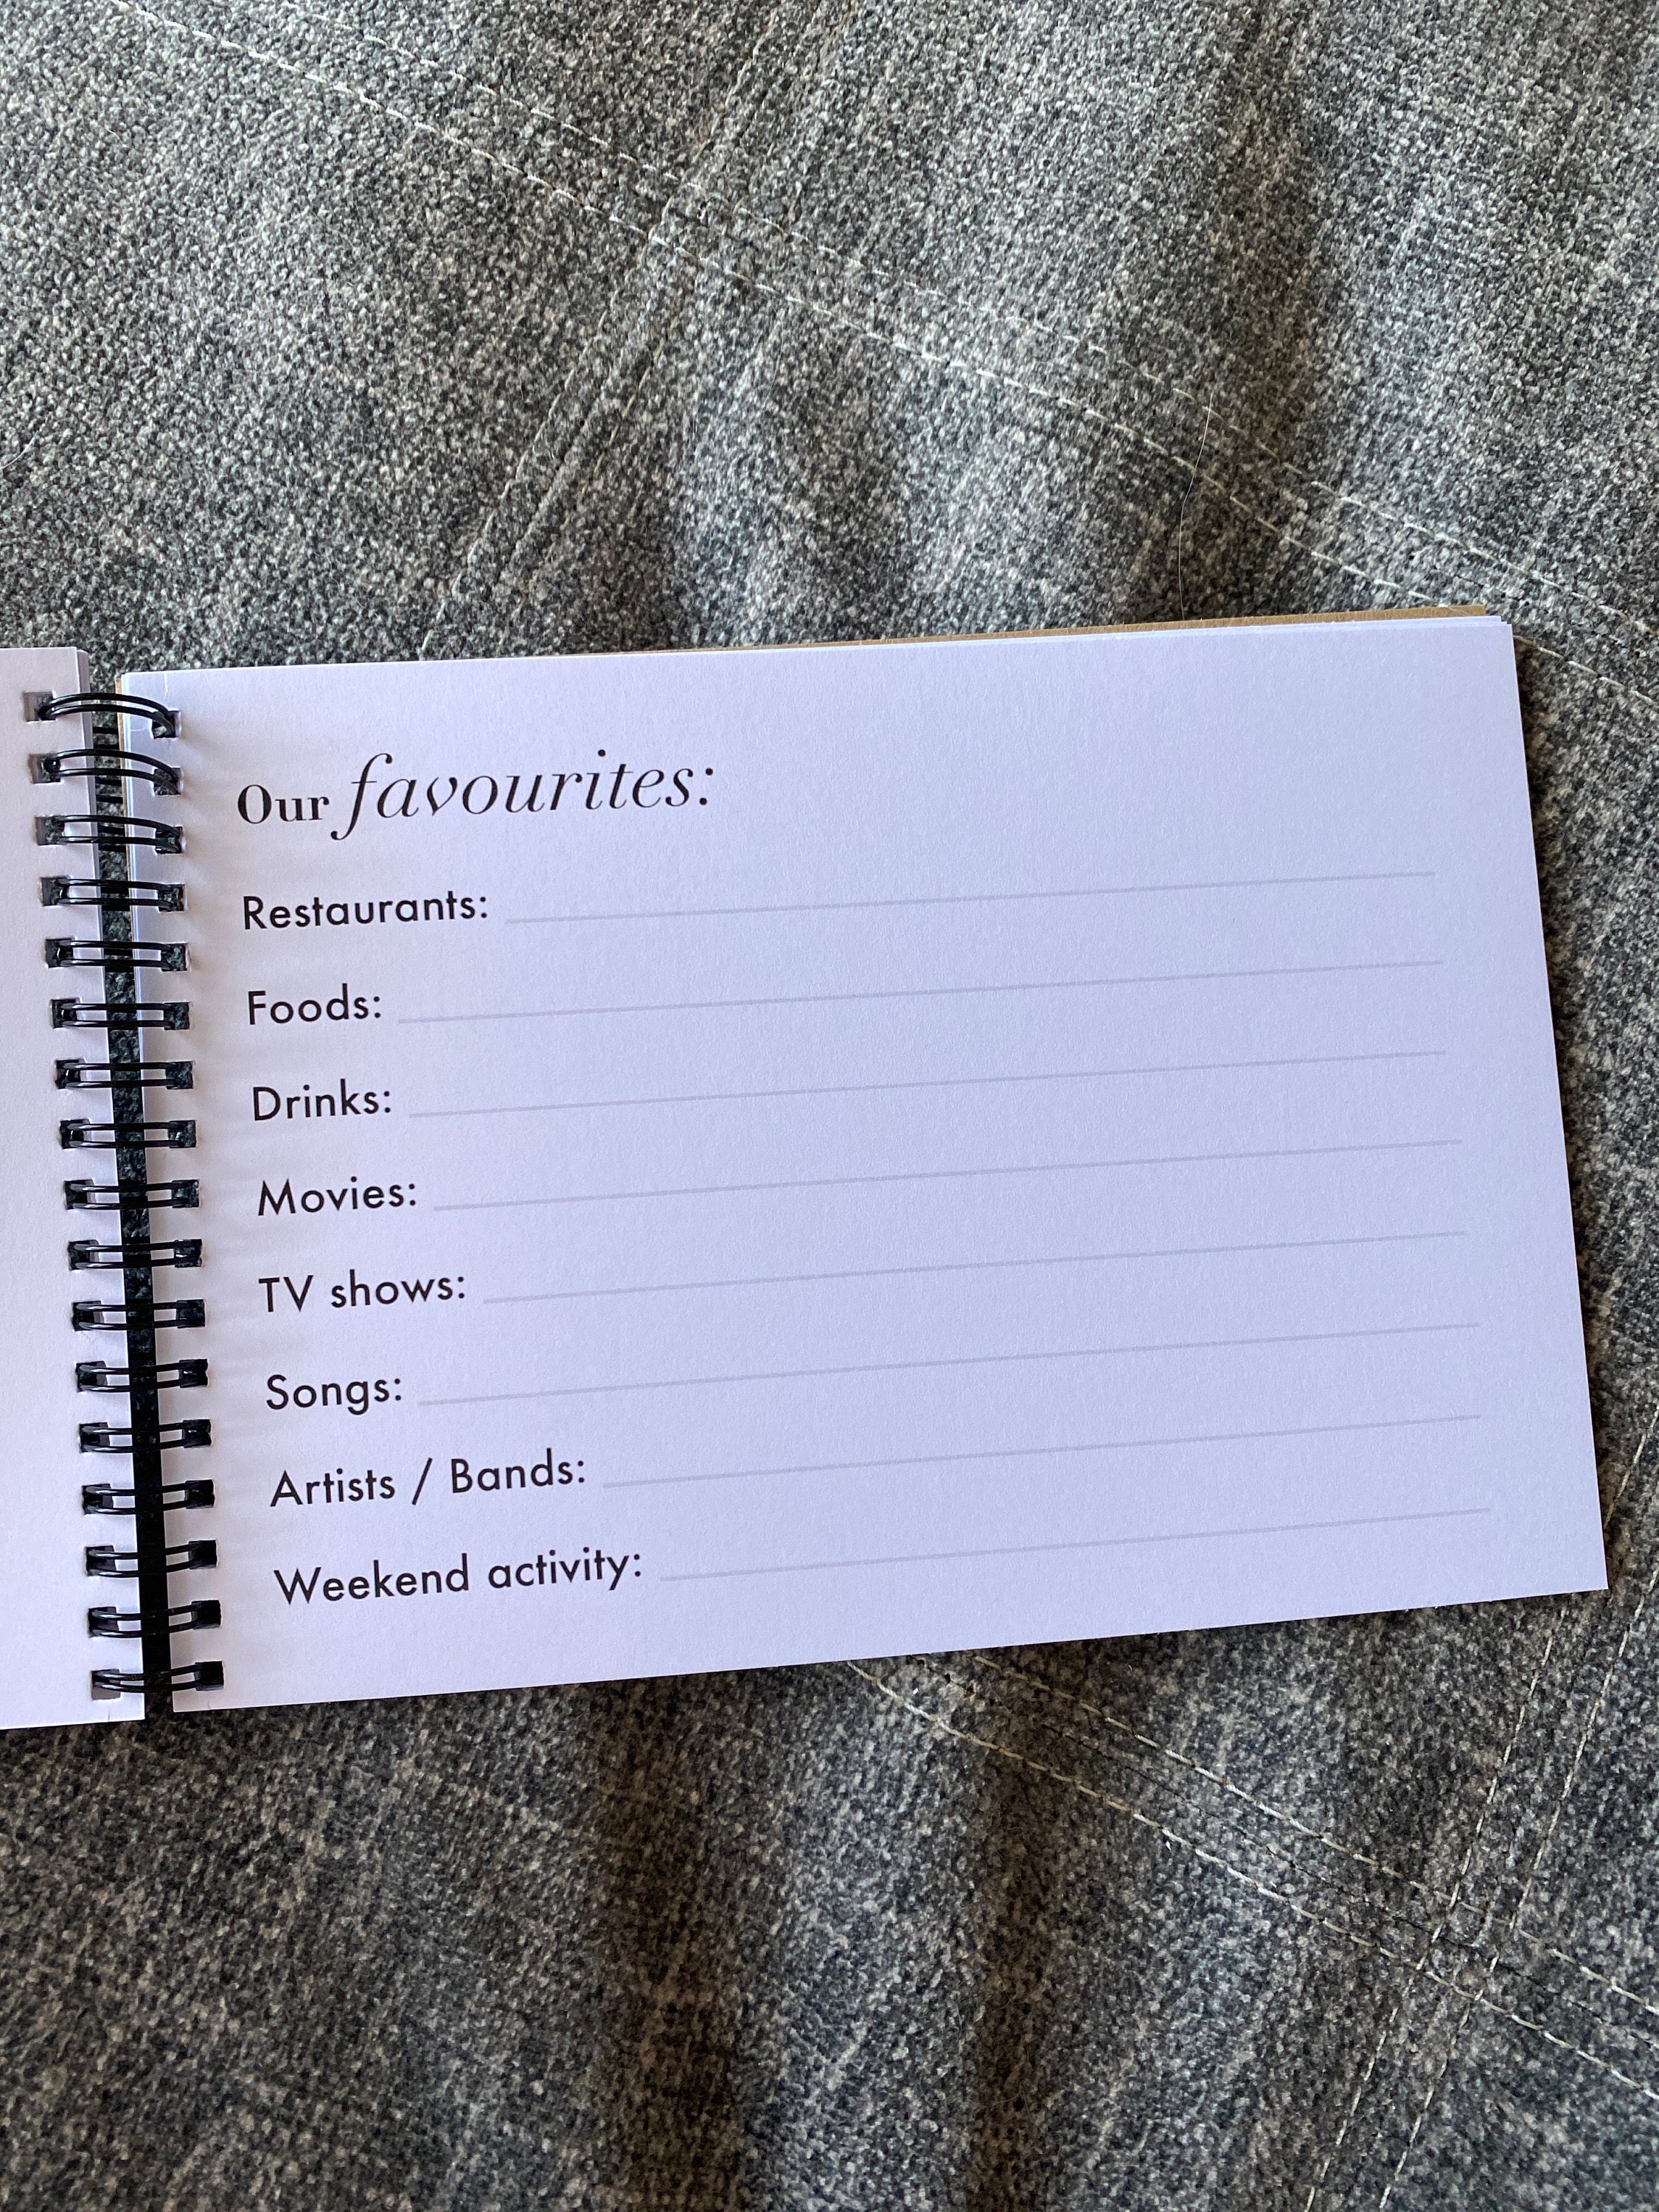 Our favourites:
Restaurants:
Foods:
Drinks:
Movies:
TV shows:
Songs:
Artists / Bands:
Weekend activity: